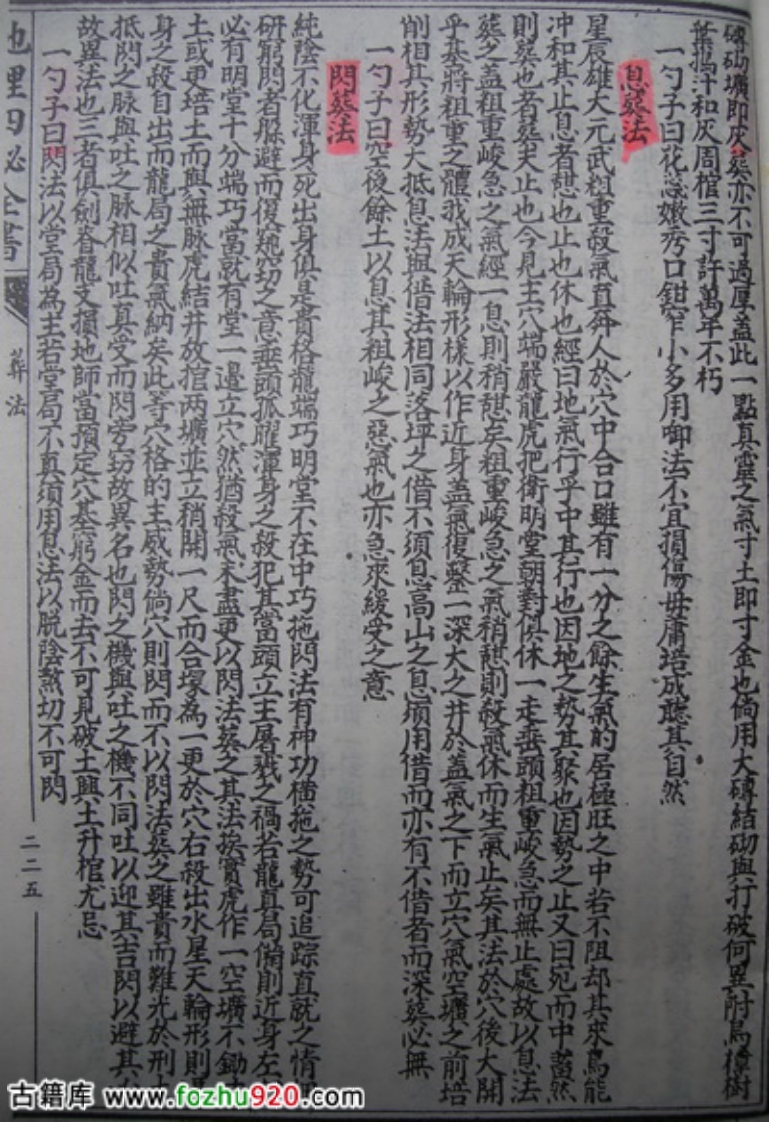 磚砌壙即灰葬亦不可過厚蓋此一點真靈之氣寸土即寸金也倘用大磚結砌與打破何異附烏樟樹
葉搗汁和灰周棺三寸許萬年不朽
一勺子曰花蕊嫩秀口鉗窄小多用啣法不宜損傷毋庸培成聽其自然
息葬法
星辰雄大元武粗重殺氣直奔人於穴中合口雖有一分之餘生氣的居極旺之中若不阻却其來烏能
冲和其止息者憇也止也休也經曰地氣行乎中其行也因地之勢其聚也因勢之止又曰宛而中蓄然
則葬也者葬夫止也今見主穴端嚴龍虎把衛明堂朝對俱休一走垂頭粗重峻急而無止處故以息法
葬之蓋粗重峻急之氣經一息則稍憇矣粗重峻急之氣稍憇則殺氣休而生氣止矣其法於穴後大開
乎基將粗重之體裁成天輪形樣以作近身蓋氣復鑿一深大之井於蓋氣之下而立穴氣空壙之前培
削相其形勢大抵息法與借法相同落坪之借不須息高山之息須用借而亦有不借者而深葬必無
一勺子曰空後餘土以息其粗峻之惡氣也亦急來緩受之意
閃葬法
純陰不化渾身死出身俱是貴格龍端巧明堂不在中巧拖閃法有神功檣拖之勢可追踪直就之情
研窮閃者躲避而復窺窃之意垂頭孤曜渾身之殺犯其當頭立主屠戮之禍若龍真局備則近身左
必有明堂十分端巧當就有堂一邊立穴然猶殺氣未盡更以閃法葬之其法挨實虎作一空壙不鋤
土或更培土而與無脉虎結井放棺两壙並立稍開一尺而合塚為一更於穴右殺出水星天輪形則
身之殺自出而龍局之貴氣納矣此等穴格的主威勢倘穴則閃而不以閃法葬之雖貴而難光於刑
抵閃之脉與吐之脉相似吐真受而閃旁窃故異名也閃之機與吐之機不同吐以迎其吉閃以避其
故異法也三者俱劍脊龍支損地師當預定穴基躬金而去不可見破土興土升棺尤忌
一勺子曰閃法以堂局為主若堂局不真須用息法以脱陰煞切不可閃
地理四秘全書
葬法
二二五
古籍库 www.fozhu920.com